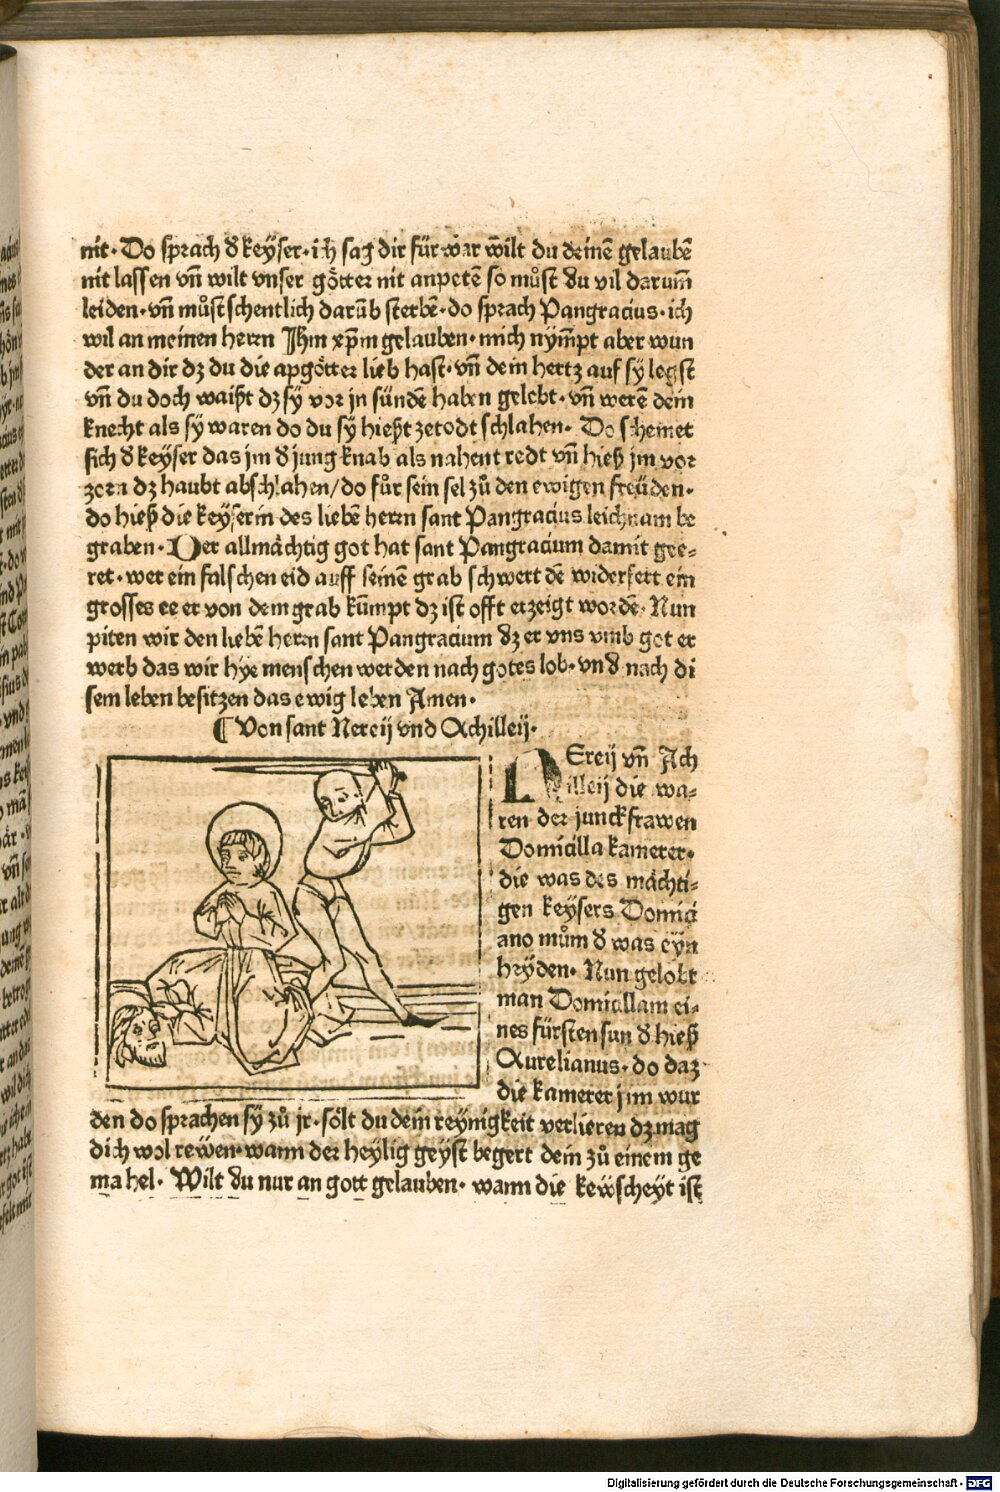 nit· Do sprach d̕ keÿser· ich sag dir für war wilt du deinē gelaubē
nit lassen vñ wilt vnser götter nit anpetē so můst du vil darum̄
leiden· vñ můst schentlich darūb sterbē· do sprach Pangracius· ich
wil an meinen herrn Jhm xp̄m gelauben· mich nym̄pt aber wun
der an dir dz du die apgötter lieb hast· vñ dein hertz auf sÿ legst
vñ du doch waißt dz sÿ vor jn sündē haben gelebt· vñ werē dein
knecht als sÿ waren do du sÿ hießt zetodt schlahen· Do schemet
sich d̕ keÿser das jm d̕ jung knab als nahent redt vñ hieß jm vor
zorn dz haubt abschlahen/ do fůr sein sel zů den ewigen freüden·
do hieß die keÿserin des liebē herrn sant Pangracius leichnam be
graben· Der allmächtig got hat sant Pangracium damit gee⸗
ret· wer ein falschen eid auff seinē grab schwert dē widerfert ein
grosses ee er von dem grab kūmpt dz ist offt erzeigt wordē· Nun
piten wir den liebē herrn sant Pangracium dz er vns vmb got er
werb das wir hÿe menschen werden nach gotes lob· vnd̕ nach di
sem leben besitzen das ewig leben Amen·
¶ Von sant Nereij vnd Achilleij·
NEreij vñ Ach
illeij die wa⸗
ren der junckfrawen
Domicilla kamerer·
die was des mächti⸗
gen keÿsers Domici
ano mům d̕ was eÿn
heÿden· Nun gelobt
man Domicillam ei⸗
nes fürsten sun d̕ hieß
Aurelianus· do daz
die kamerer jnn wur
den do sprachen sÿ zů jr· sölt du dein reÿnigkeit verlieren dz mag
dich wol rewen· wann der heÿlig geÿst begert dein zů einem ge
mahel· Wilt du nur an gott gelauben· wann die kewscheÿt ist
Digitalisierung gefördert durch die Deutsche Forschungsgemeinschaft · DFG